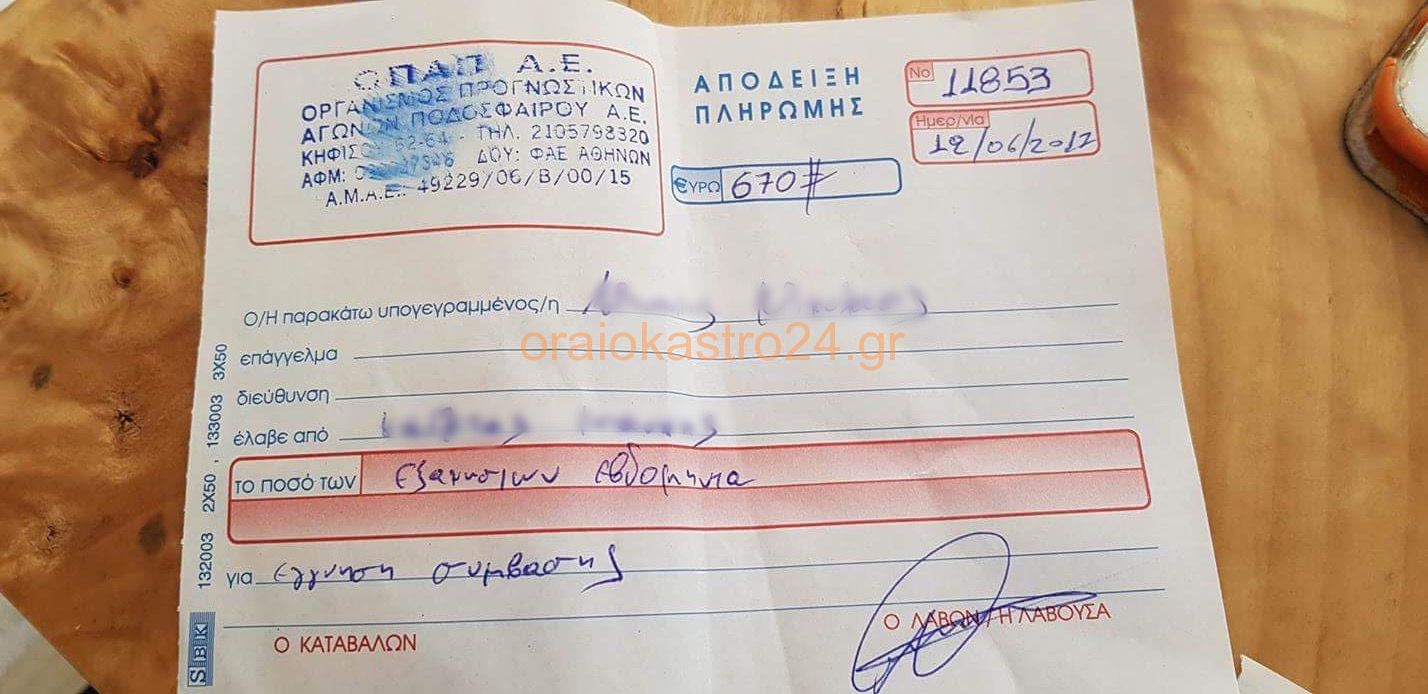 ΟΠΑΠ Α.Ε.
ΟΡΓΑΝΙΣΜΟΣ ΠΡΟΓΝΩΣΤΙΚΩΝ
ΑΓΩΝΩΝ ΠΟΔΟΣΦΑΙΡΟΥ Α.Ε.
62-64 ΤΗΛ. 2105798320
ΑΦΜ: ΔΟΥ: ΦΑΕ ΑΘΗΝΩΝ
Α.Μ.Α.Ε.: 49229/06/Β/00/15
ΑΠΟΔΕΙΞΗ
ΠΛΗΡΩΜΗΣ
No 11853
Ημερ/νία
12/06/2017
ΕΥΡΩ 670#
Ο/Η παρακάτω υπογεγραμμένος/η
oraiokastro24.gr
επάγγελμα
διεύθυνση
έλαβε από
το ποσό των εξακοσίων εβδομήντα
για εγγυηση συμβασης
Ο ΚΑΤΑΒΑΛΩΝ
Ο ΛΑΒΩΝ / Η ΛΑΒΟΥΣΑ
SBK 132003 2X50 , 133003 3X50